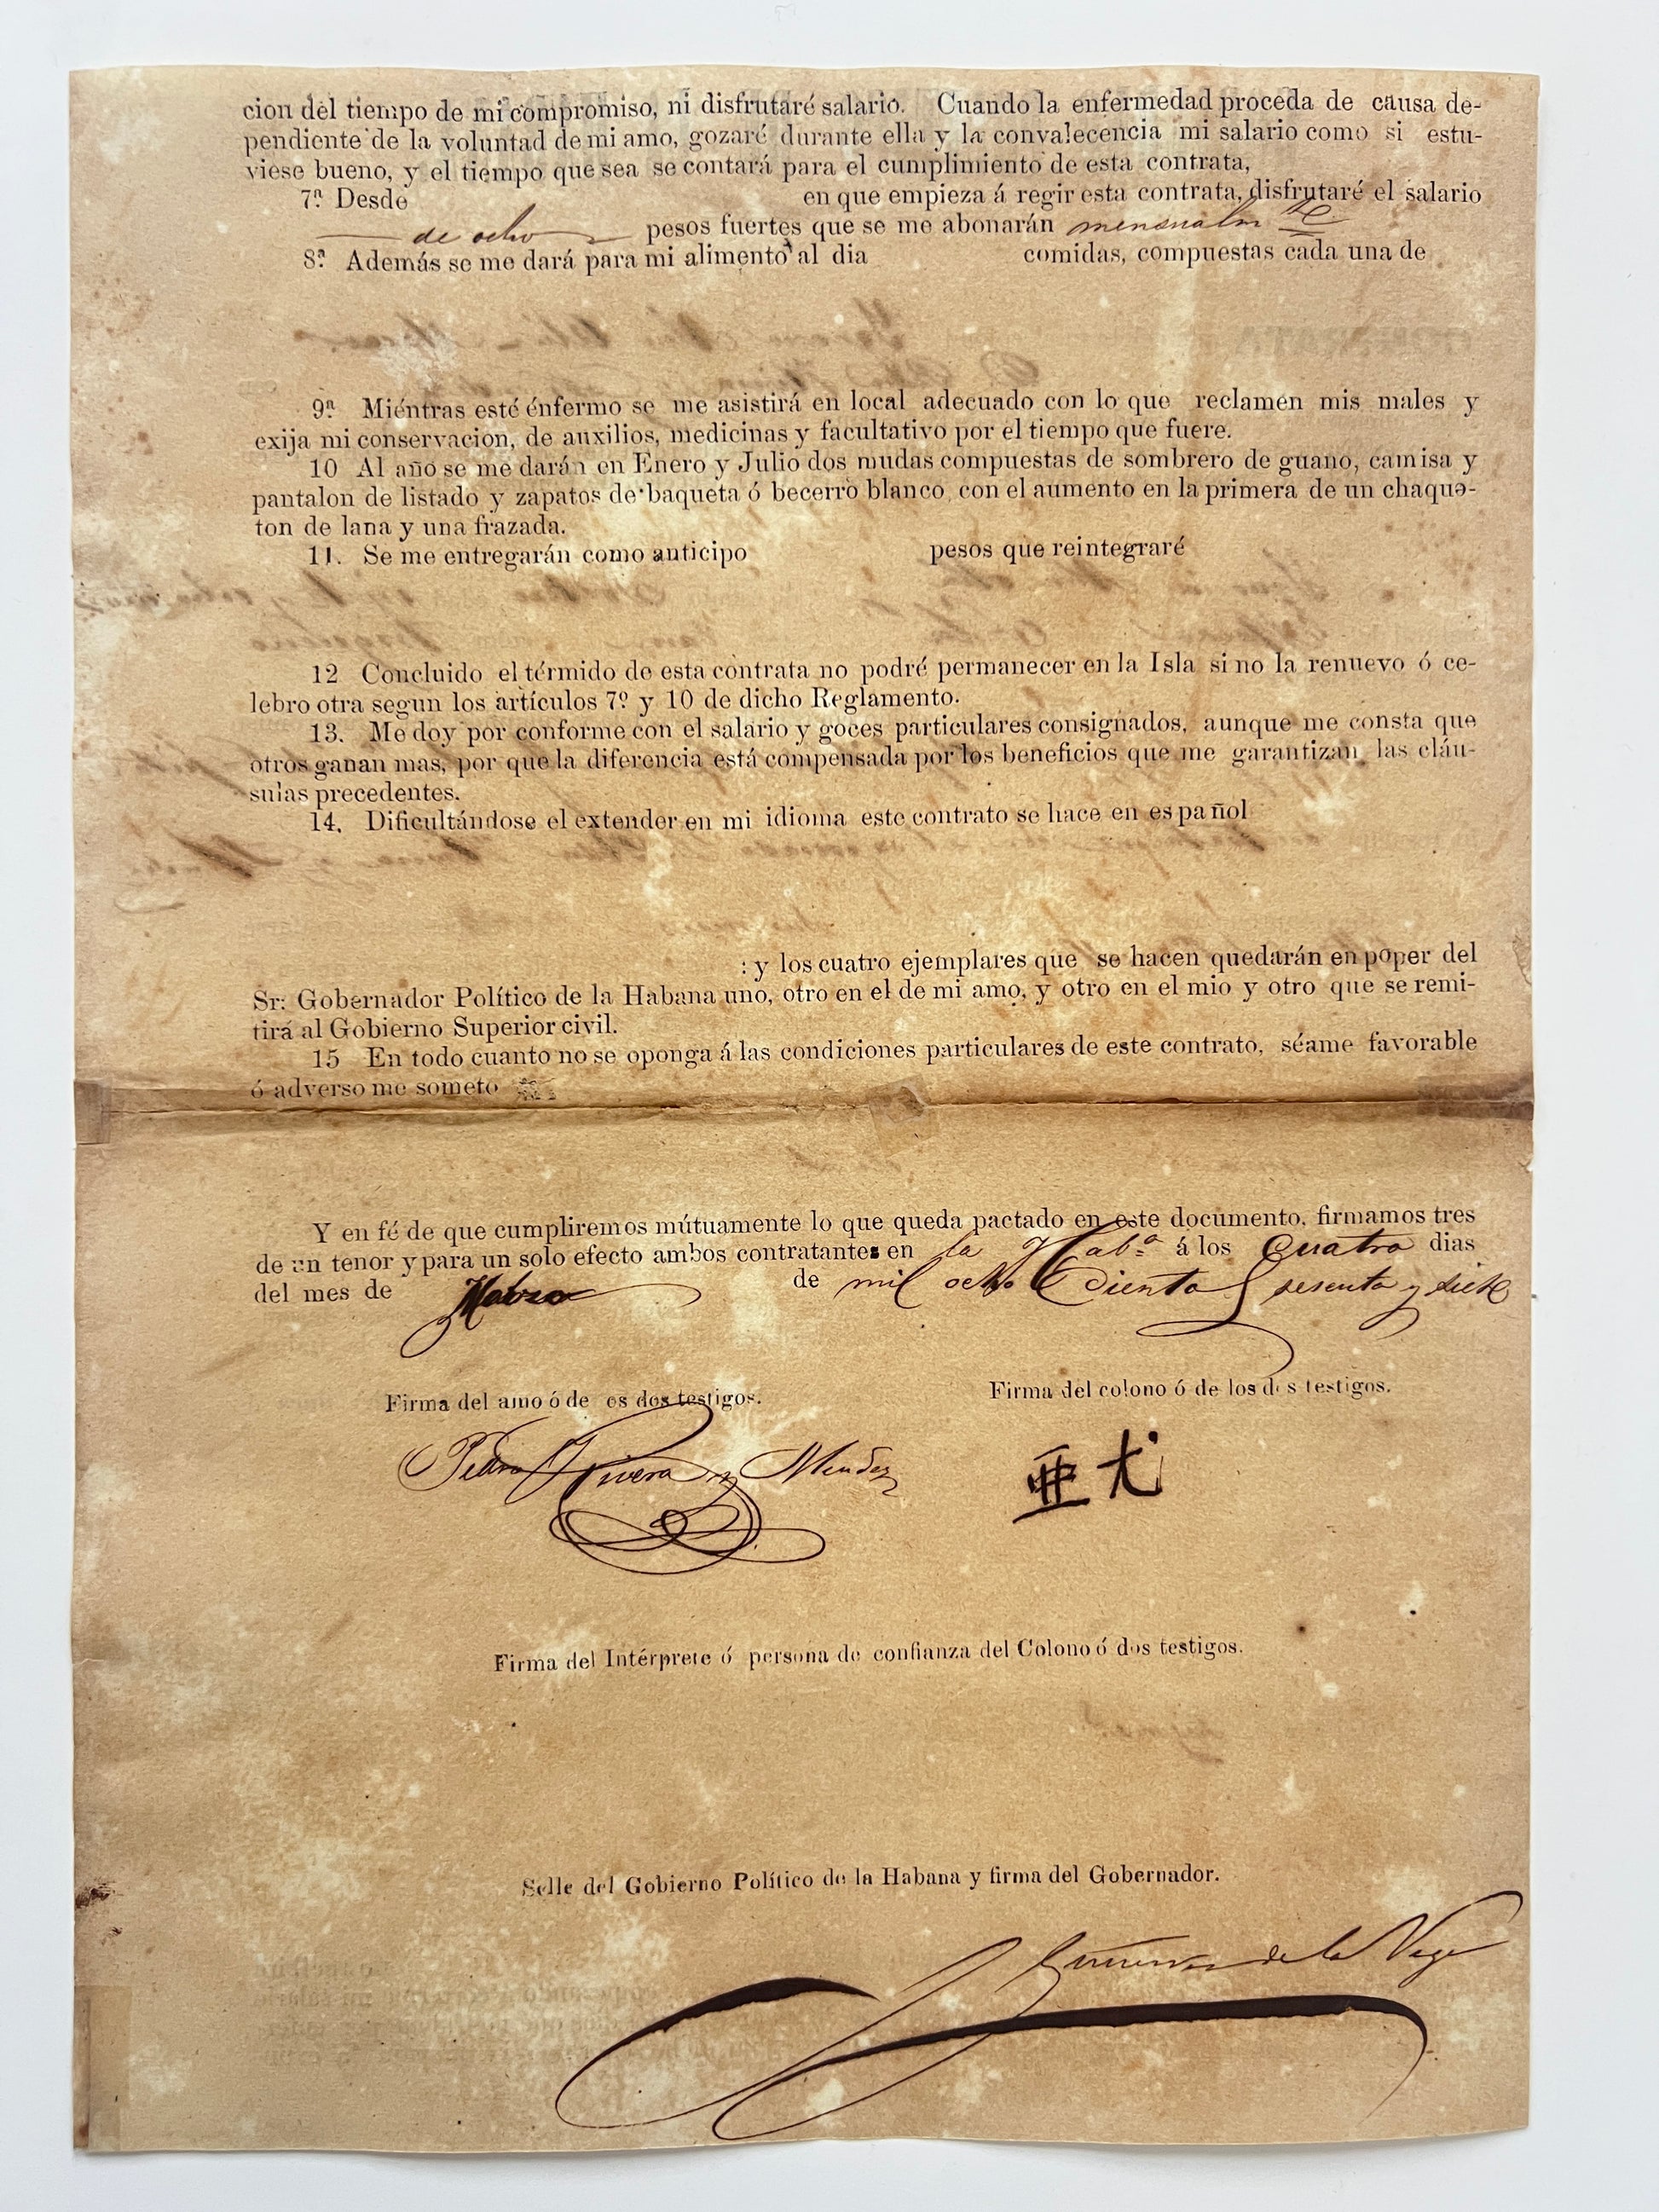 cion del tiempo de mi compromiso, ni disfrutaré salario. Cuando la enfermedad proceda de causa de-
pendiente de la voluntad de mi amo, gozaré durante ella y la convalecencia mi salario como si estu-
viese bueno, y el tiempo que sea se contará para el cumplimiento de esta contrata,
7ª Desde en que empieza á regir esta contrata, disfrutaré el salario
de ocho pesos fuertes que se me abonarán mensualmte
8ª Además se me dará para mi alimento al dia comidas, compuestas cada una de
9ª Miéntras esté énfermo se me asistirá en local adecuado con lo que reclamen mis males y
exija mi conservacion, de auxilios, medicinas y facultativo por el tiempo que fuere.
10 Al año se me darán en Enero y Julio dos mudas compuestas de sombrero de guano, camisa y
pantalon de listado y zapatos de baqueta ó becerro blanco, con el aumento en la primera de un chaque-
ton de lana y una frazada.
11. Se me entregarán como anticipo pesos que reintegraré
12 Concluido el térmido de esta contrata no podré permanecer en la Isla si no la renuevo ó ce-
lebro otra segun los artículos 7º y 10 de dicho Reglamento.
13. Me doy por conforme con el salario y goces particulares consignados, aunque me consta que
otros ganan mas, por que la diferencia está compensada por los beneficios que me garantizan las cláu-
sulas precedentes.
14. Dificultándose el extender en mi idioma este contrato se hace en español
: y los cuatro ejemplares que se hacen quedarán en poper del
Sr: Gobernador Político de la Habana uno, otro en el de mi amo, y otro en el mio y otro que se remi-
tirá al Gobierno Superior civil.
15 En todo cuanto no se oponga á las condiciones particulares de este contrato, séame favorable
ó adverso me someto
Y en fé de que cumpliremos mútuamente lo que queda pactado en este documento, firmamos tres
de un tenor y para un solo efecto ambos contratantes en la Habª á los Cuatro dias
del mes de Marzo de mil ocho Cientos sesenta y siete
Firma del amo ó de os dos testigos. Firma del colono ó de los dos testigos.
Pedro Rivera y Mendez 亜尤
Firma del Intérprete ó persona de confianza del Colono ó dos testigos.
Selle del Gobierno Político de la Habana y firma del Gobernador.
de la Vega